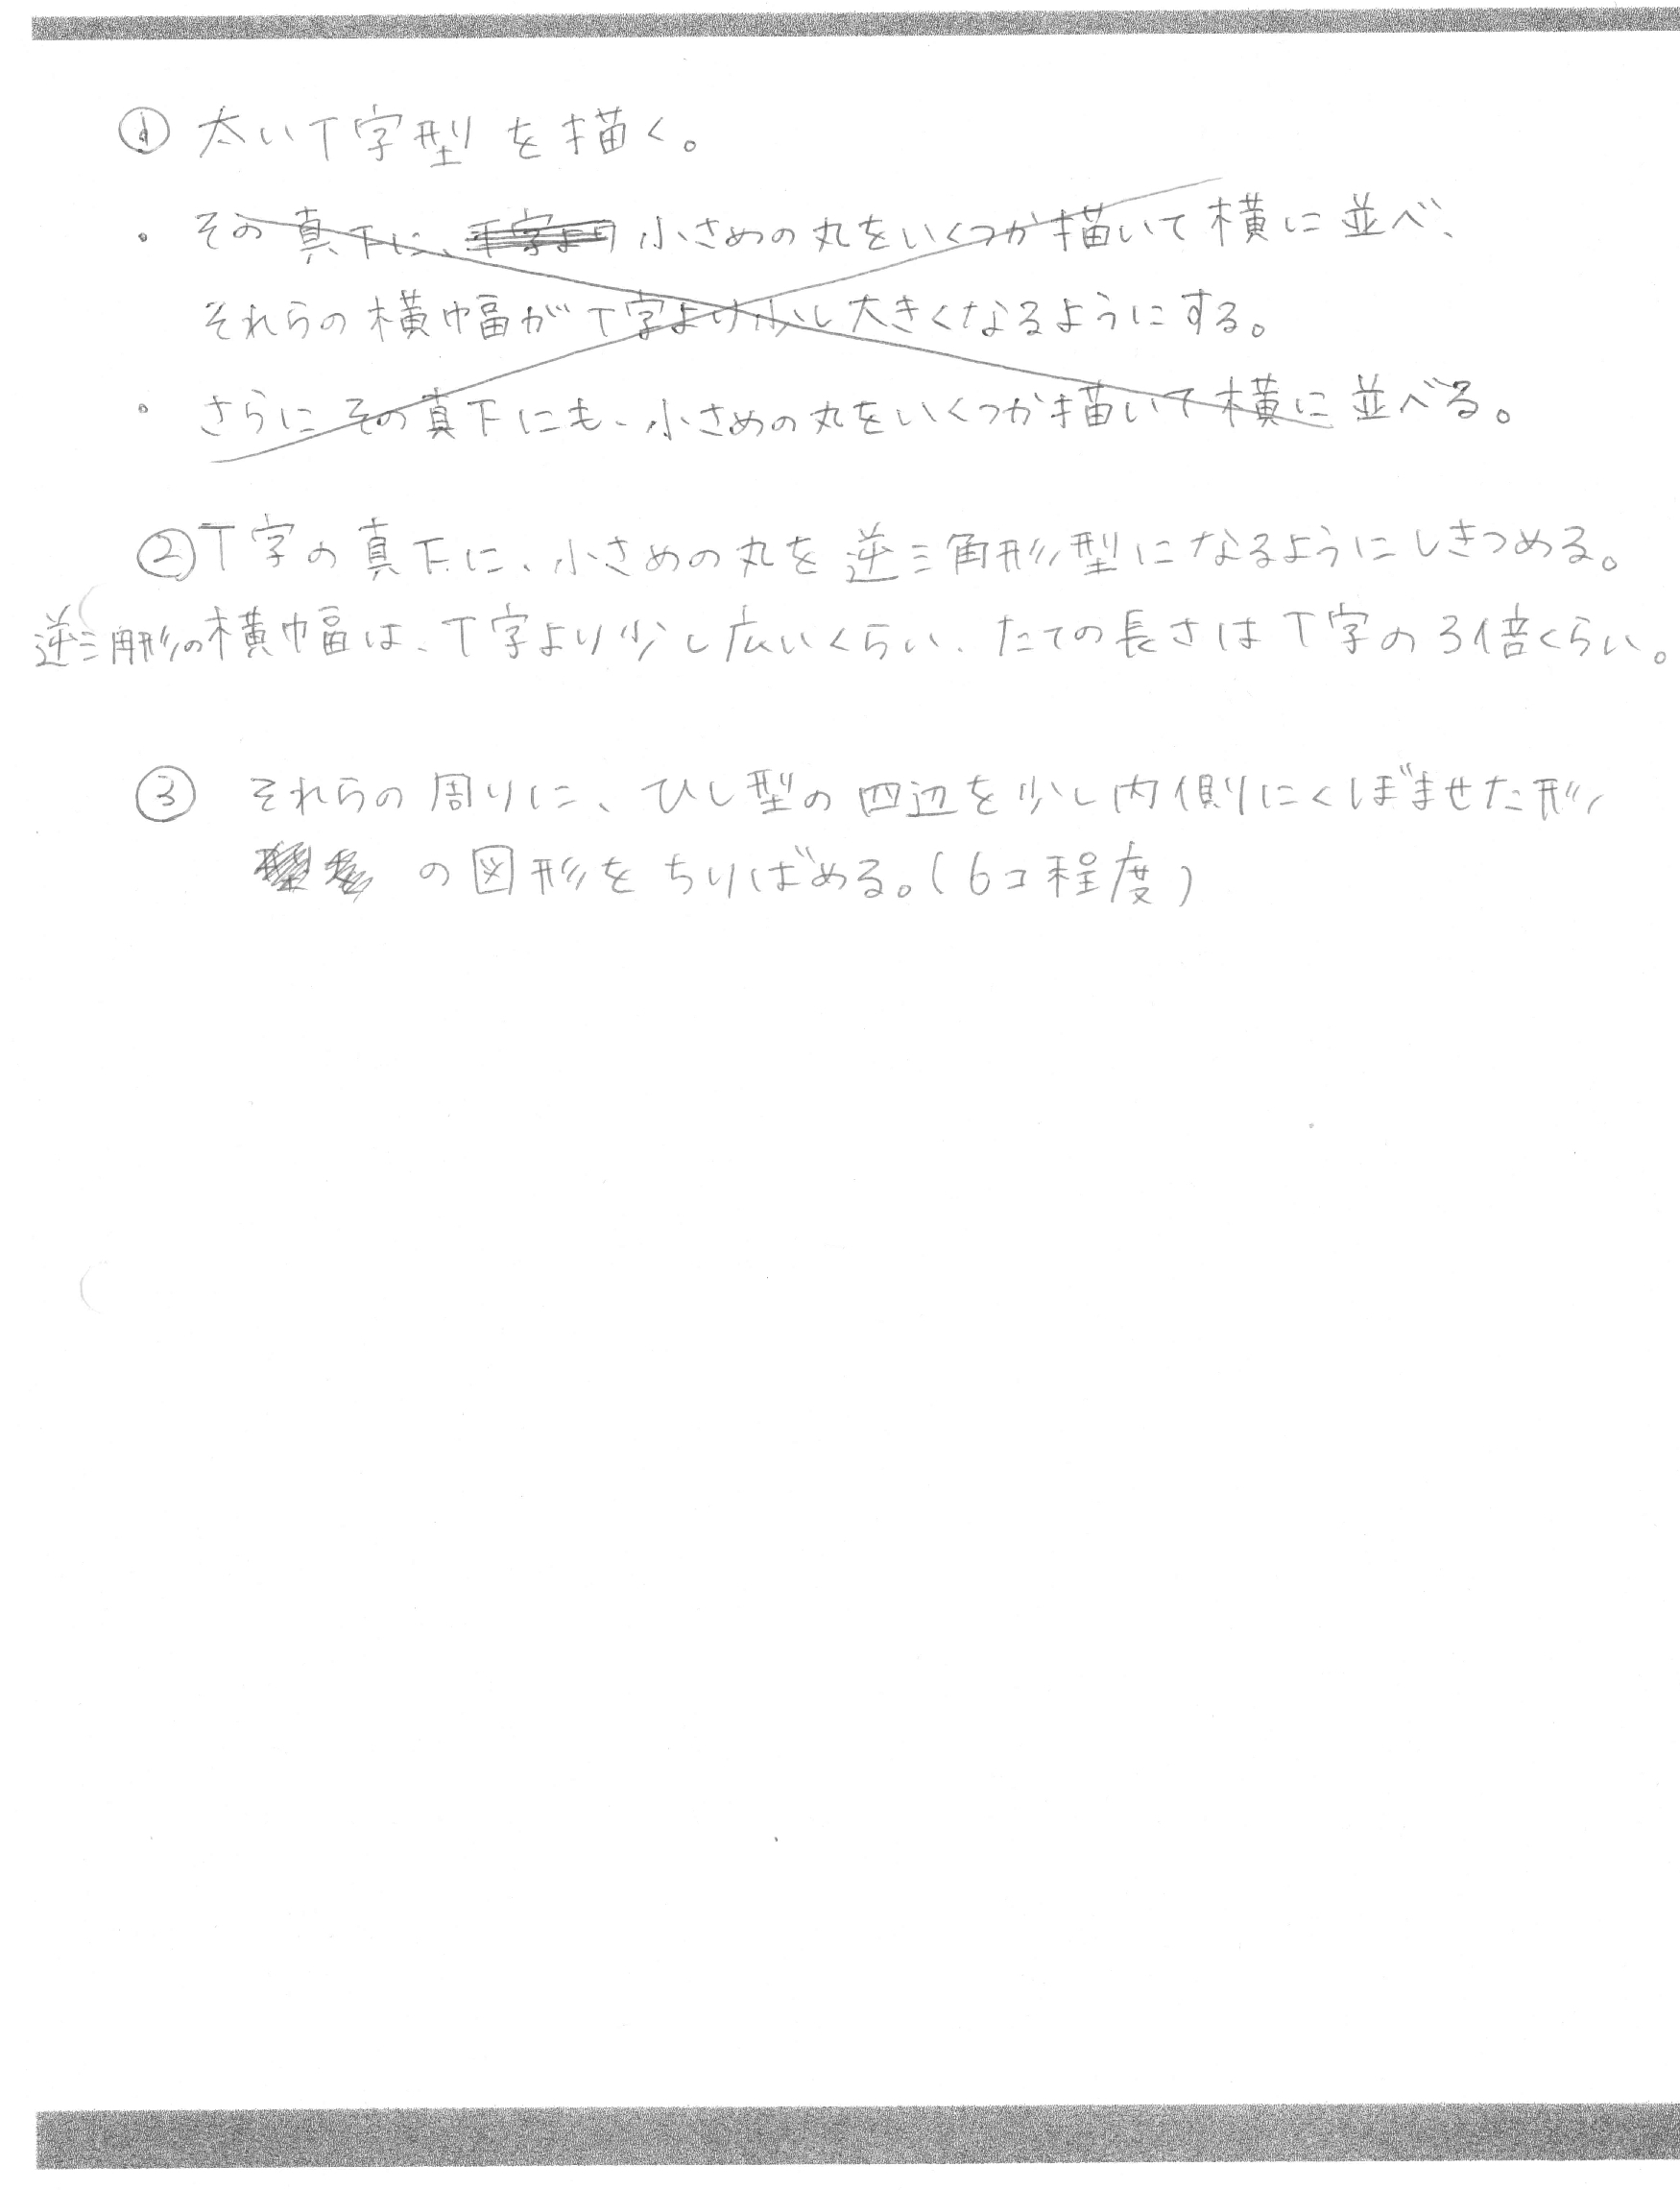 ① 太いT字型を描く。
・ その真下に、小さめの丸をいくつか描いて横に並べ、
それらの横巾幅がT字より少し大きくなるようにする。
・ さらにその真下にも、小さめの丸をいくつか描いて横に並べる。
②T字の真下に、小さめの丸を逆三角形型になるようにしきつめる。
逆三角形の横巾幅は、T字より少し広いくらい、たての長さはT字の3倍くらい。
③ それらの周りに、ひし型の四辺を少し内側にくぼませた形
の図形をちりばめる。(6コ程度)